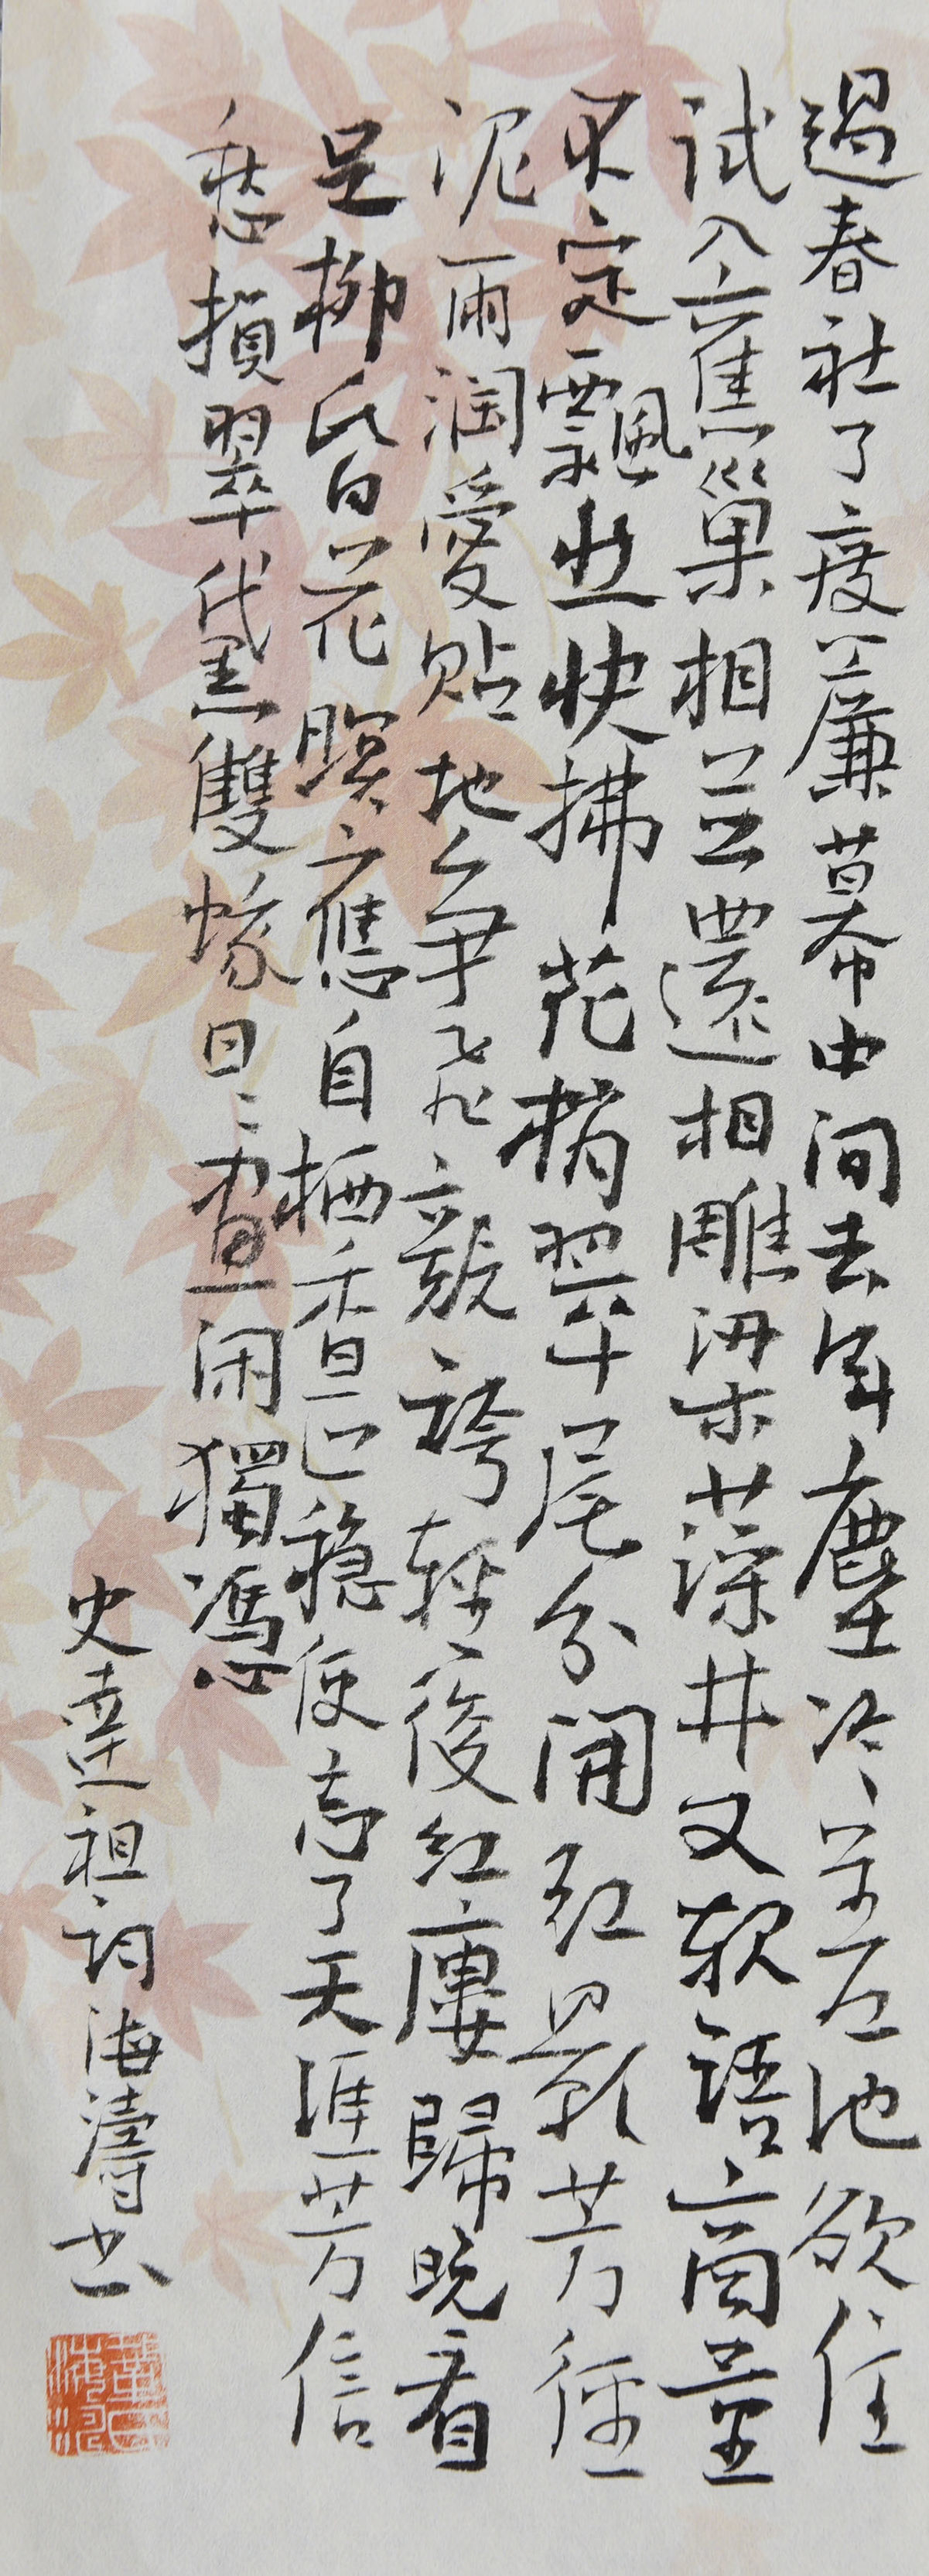 過春社了度簾幕中間去年塵冷差池欲住
試入舊巢相並還相雕梁藻井又軟語商量
不定飄然快拂花梢翠尾分開紅影芳徑
泥雨潤愛貼地爭飛競誇輕俊紅廔歸晚看
足柳昏花暝應自栖香正穩便忘了天涯芳信
愁損翠黛雙蛾日〻畫闌獨憑
史達祖詞海濤书